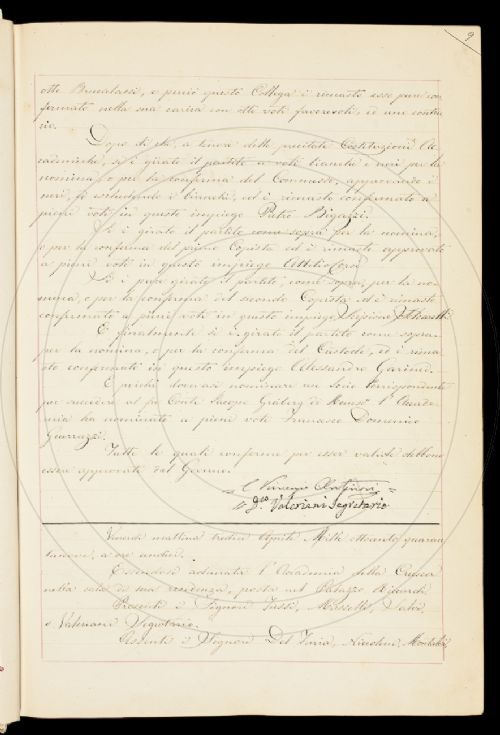 9
otto Benalassi, e perciò questo Collega è rimasto esso pure con
fermato nella sua carica con otto voti favorevoli, ed uno contra
rio.
Dopo di che, a tenore delle precitate Costituzioni Ac
cademiche, si è girato il partito a voti bianchi e neri per la
nomina, o per la conferma del Commesso, approvando i
neri, ed escludendo i bianchi, ed è rimasto confermato a
pieni voti in questo impiego Pietro Bigazzi.
Si è girato il partito come sopra per la nomina,
o per la conferma del primo Copista ed è rimasto approvato
a pieni voti in questo impiego Attilio Corsi
Si è pure girato il partito, come sopra, per la no-
mina, o per la conferma del secondo Copista, ed è rimasto
confermato a pieni voti in questo impiego Scipione
E finalmente si è girato il partito come sopra
per la nomina, o per la conferma del Custode, ed è rima
sto confermato in questo impiego Alessandro
E poichè dovevasi nominare un Socio Corrispondente
per succedere al fu Conte Jacopo Gräberg de Hemsö l'Accade
mia ha nominato a pieni voti Francesco Domenico
Guerrazzi.
Tutte le quali conferme per esser valide debbono
essere approvate dal Governo.
Vincenzo Antinori
Valeriani Segretario
Venerdì mattina tredici Aprile Mille ottocento quaran
tanove, a ore undici.
Essendosi adunata l'Accademia della Crusca
nella sala di sua residenza, posta nel Palazzo Riccardi
Presenti i Signori
e Valeriani Segretario.
Assenti i Signori Del Furia, Niccolini,